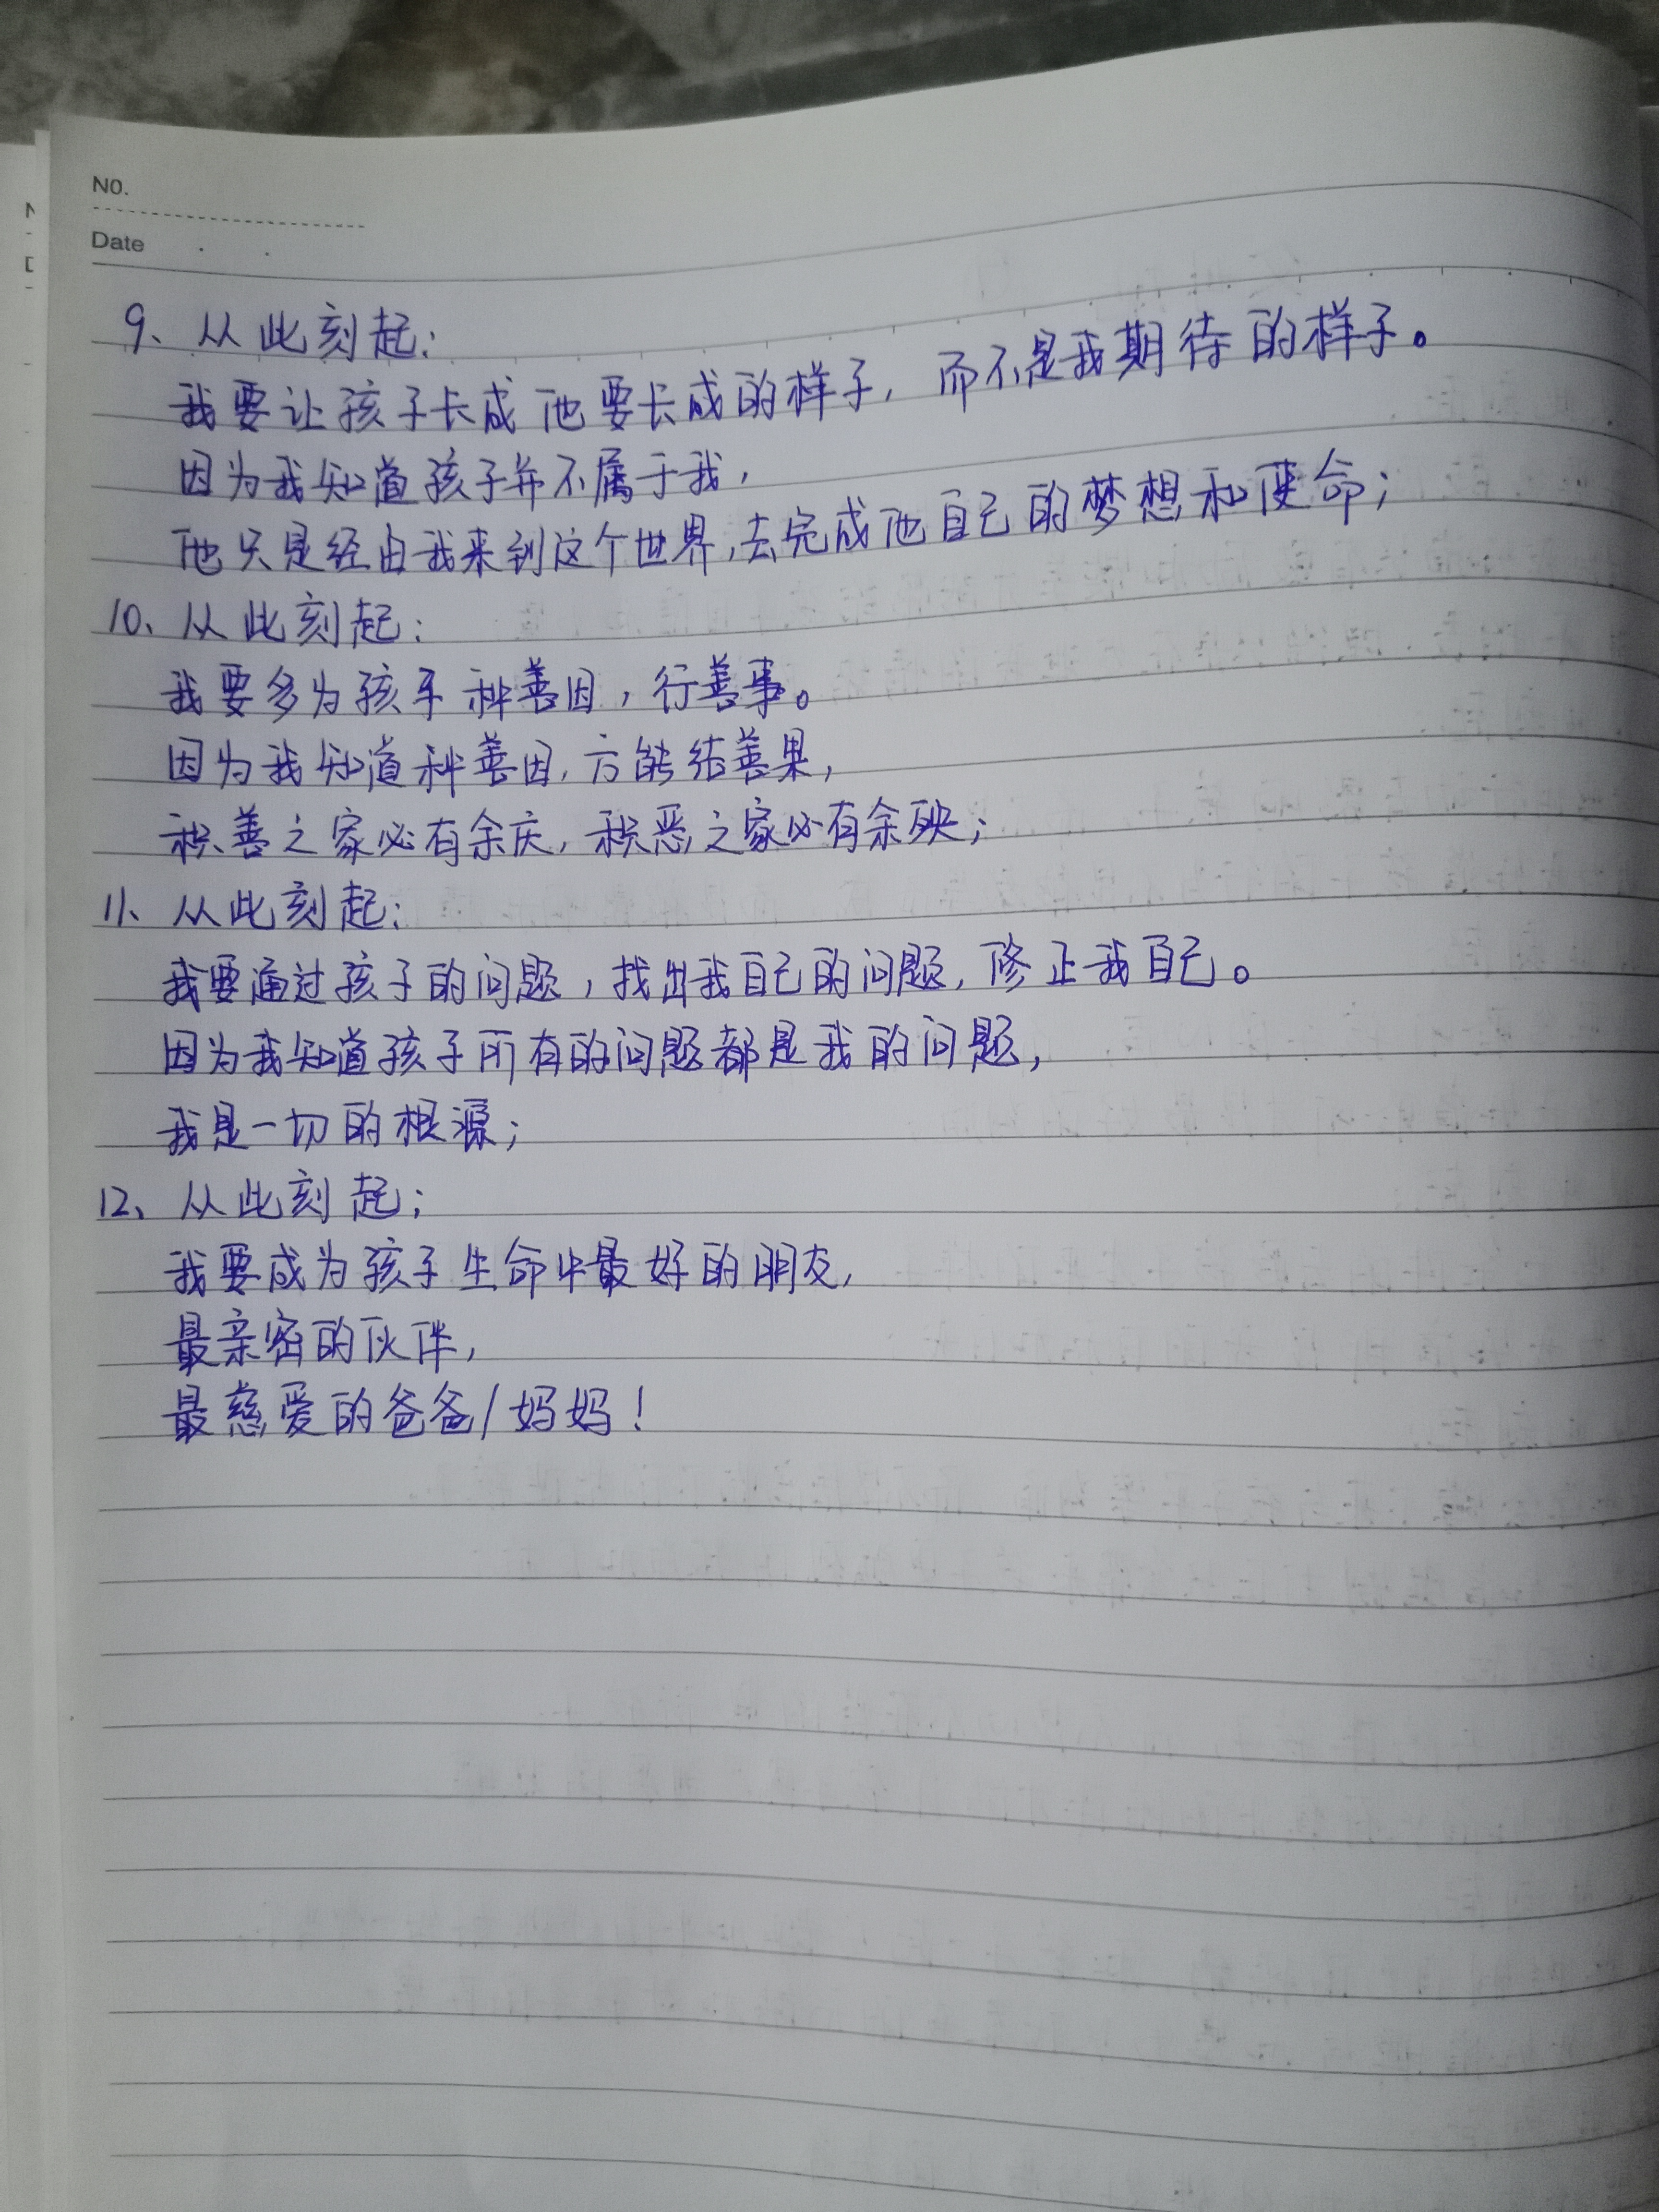 No.
Date
9、从此刻起：
我要让孩子长成他要长成的样子，而不是我期待的样子。
因为我知道孩子并不属于我，
他只是经由我来到这个世界，去完成他自己的梦想和使命；
10、从此刻起：
我要多为孩子种善因，行善事。
因为我知道种善因，方能结善果，
积善之家必有余庆，积恶之家必有余殃；
11、从此刻起：
我要通过孩子的问题，找出我自己的问题，修正我自己。
因为我知道孩子所有的问题都是我的问题，
我是一切的根源；
12、从此刻起；
我要成为孩子生命中最好的朋友，
最亲密的伙伴，
最慈爱的爸爸/妈妈！